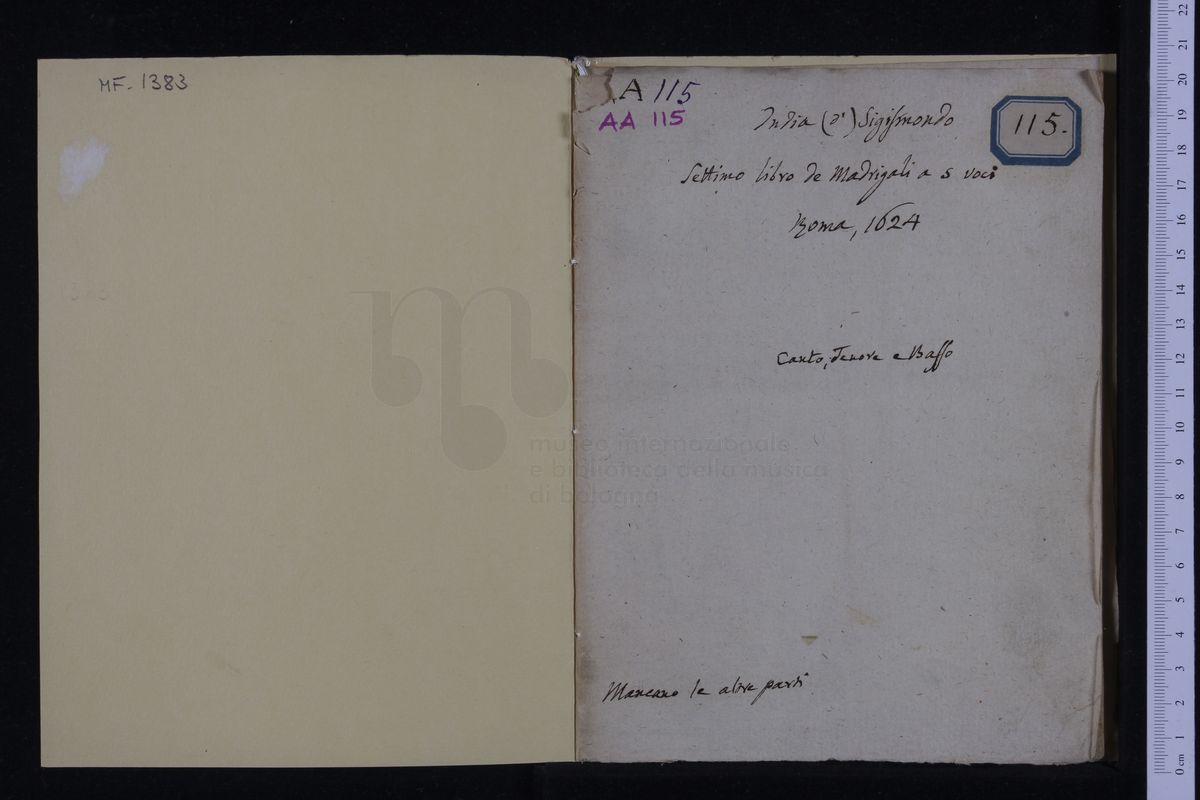 MF. 1383
AA 115
AA 115
115.
India (d') Sigismondo
Settimo libro de Madrigali a 5 voci
Roma, 1624
Canto, Tenore e Basso
Mancano le altre parti
museo internazionale
e biblioteca della musica
di bologna
22
21
20
19
18
17
16
15
14
13
12
11
10
9
8
7
6
5
4
3
2
1
0 cm